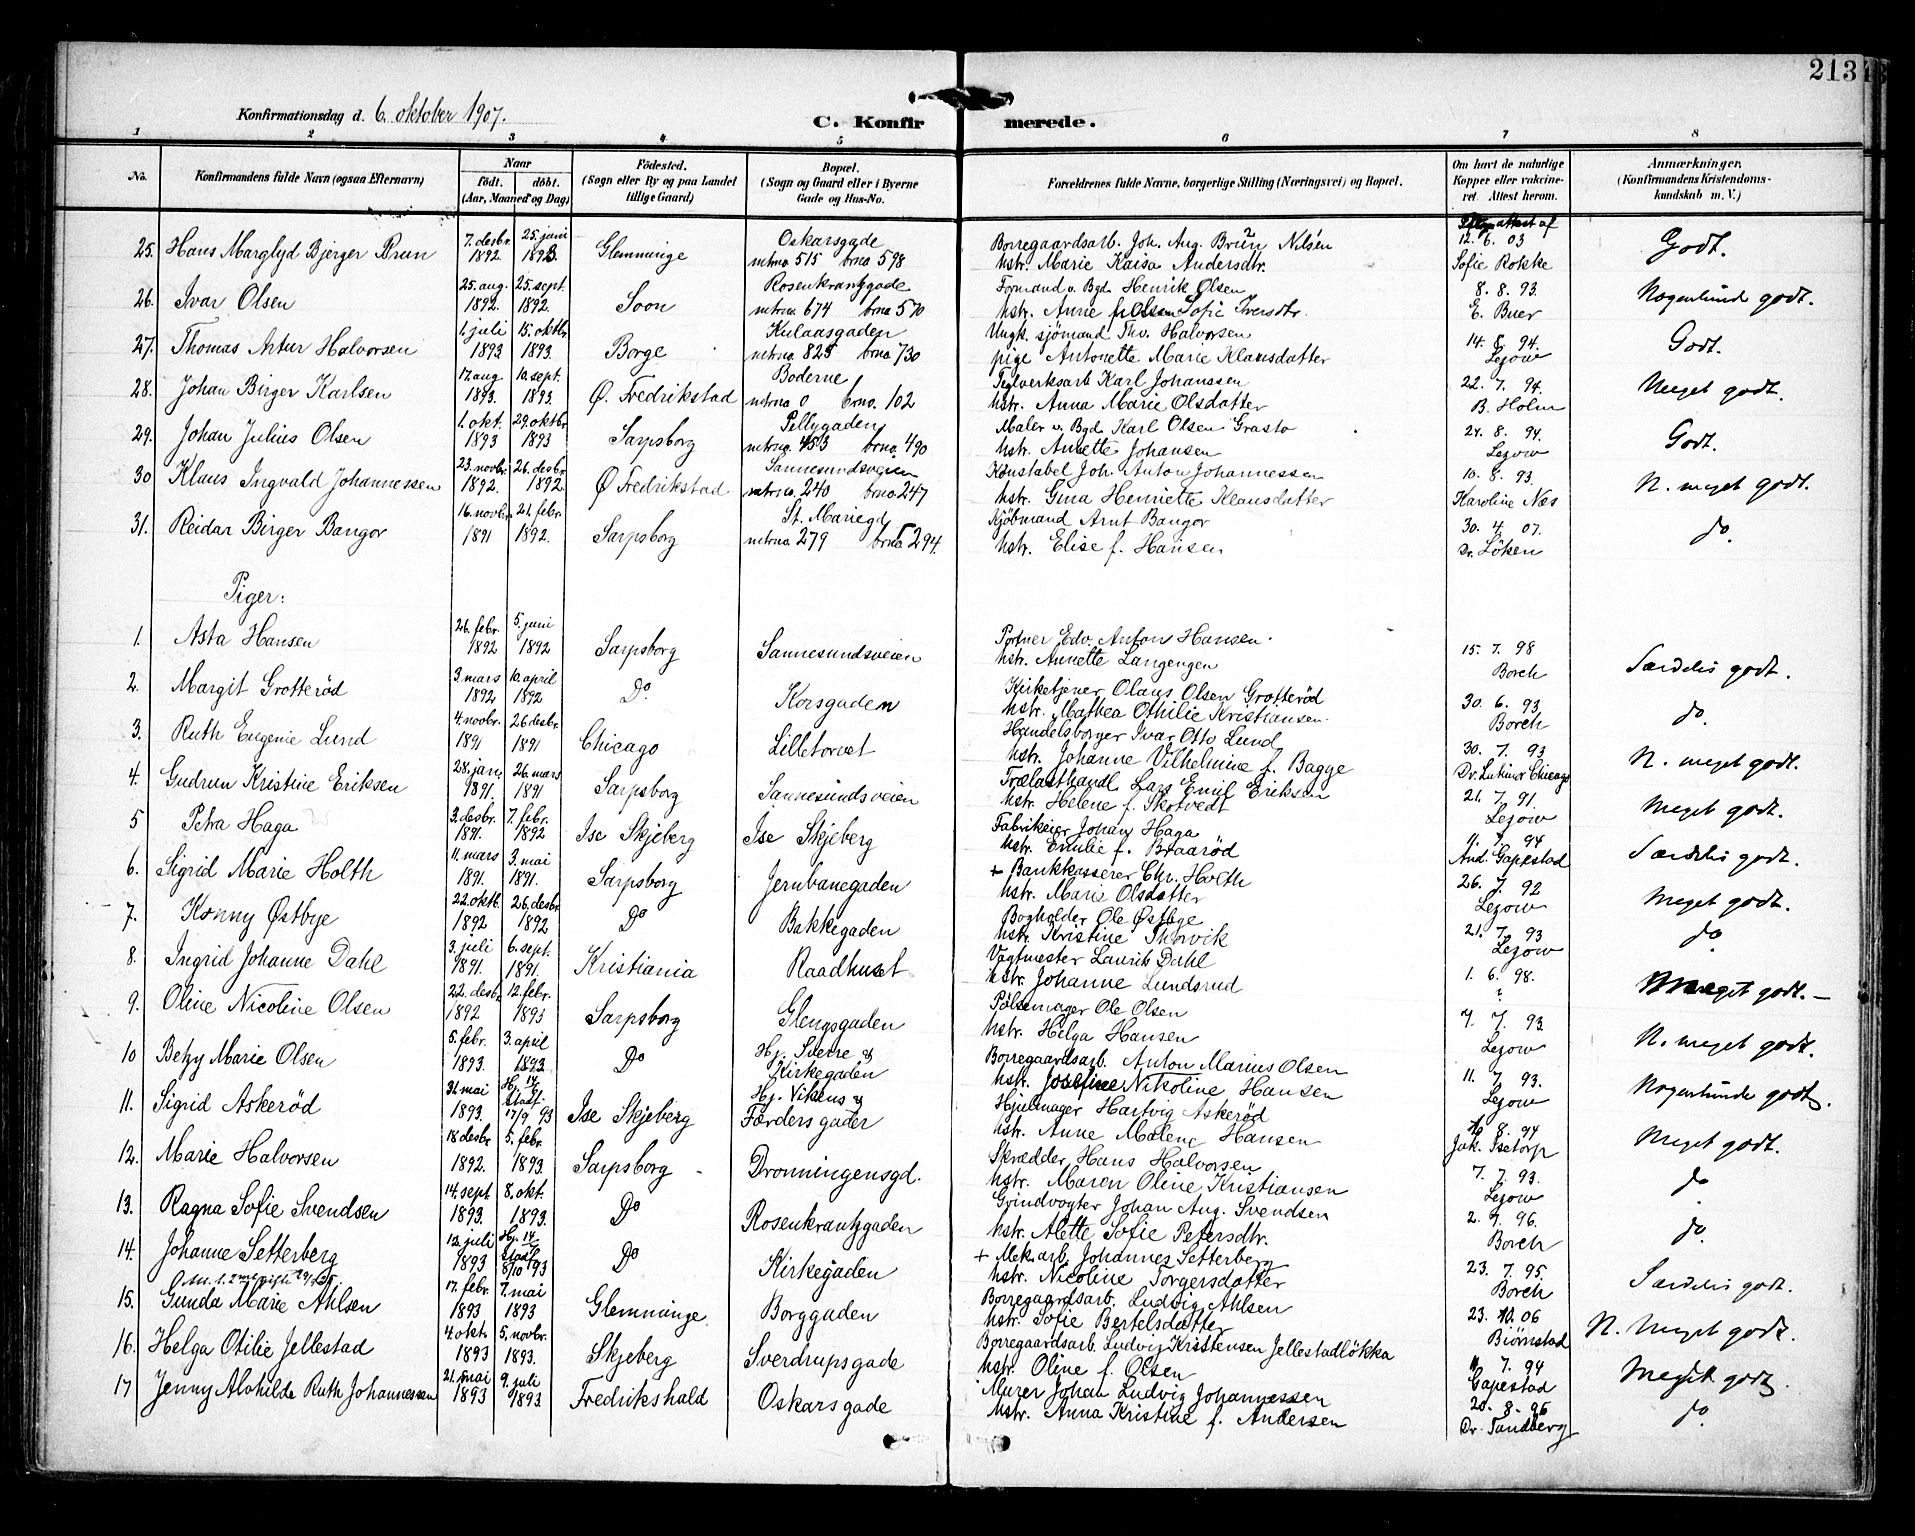 213
Konfirmationsdag d. 6. oktober 1907.
C. Konfirmerede.
1 2 3 4 5 6 7 8
No. Konfirmandens fulde Navn (ogsaa Efternavn) Naar födt. döbt. (Aar, Maaned og Dag) Födested. (Sogn eller By og paa Landet tillige Gaard) Bopæl. (Sogn og Gaard eller i Byerne Gade og Hus-No. Forældrenes fulde Navne, borgerlige Stilling (Næringsvei) og Bopæl. Om havt de naturlige Kopper eller vakcineret. Attest herom. Anmærkninger, (Konfirmandens Kristendomskundskab m. V.)
25. Hans Marglyd Bjerger Brun 7. desbr. 1892 25. juni 1893. Glemminge Oskarsgade mtrno 515 brno 598 Borregaardsarb. Joh. Aug. Brün Nilsen hstr. Marie Kaisa Andersdtr. attest af 12. 6. 03 Sofie Rokke Godt.
26. Ivar Olsen 25. aug. 1892. 25. sept. 1892. Soon Rosenkrantzgade mtrno 674 brno 570 Formand v. Bgd. Henrik Olsen hstr. Anne Sofie Iversdtr. 8. 8. 93. E. Buer Nogenlunde godt.
27. Thomas Artur Halvorsen 1. juli 1893 15. oktbr. 1893. Borge Kulaasgaden mtrno 825 brno 730 Ungk. sjömand Tho. Halvorsen pige Antonette Marie Klausdatter 14. 8. 94. Lezow Godt.
28. Johan Birger Karlsen 17. aug 1893. 10. sept. 1893. Ø. Fredrikstad Boderne mtrno 0 brno. 102 Teglverksarb Karl Johanssen hstr. Anna Marie Olsdatter 22. 7. 94. B. Holm Meget godt.
29. Johan Julius Olsen 1. okt. 1893 29. oktbr. 1893 Sarpsborg Pellygaden mtrno. 453 brno. 490 Maler v. Bgd. Karl Olsen Grasto hstr. Anette Johansen 24. 8. 94. Lezow Godt.
30 Klaus Ingvald Johannessen 23. novbr. 1892. 26. desbr. 1892. Ø Fredrikstad Sannesundsveien mtrno. 240 brno. 247 Konstabel Joh. Anton Johannessen hstr. Gina Henriette Klausdatter 10. 8. 93. Karoline Næs N. meget godt.
31. Reidar Birger Bangor 16. novbr. 1891 21. febr. 1892. Sarpsborg St. Mariegd mtrno. 279 brno. 294. Kjöbmand Arnt Bangor hstr. Elise f. Hansen 30. 4. 07. Dr. Löken do.
Piger:
1. Asta Hansen 26. febr. 1892 5. juni 1892 Sarpsborg Sannesundsveien Portner Edv. Anton Hansen. hstr. Annette Langengen 15. 7. 98 Borch Særdeles godt.
2. Margit Grotteröd 3. mars 1892 10. april 1892 Do. Korsgaden Kirketjener Olaus Olsen Grotteröd hstr. Mathea Othilie Kristiansen. 30. 6. 93. Borch do.
3. Ruth Eugenie Lund 4. novbr. 1891 26 desbr. 1891 Chicago Lilletorvet Handelsborger Ivar Otto Lund hstr. Johanne Vilhelmine f. Bagge 30. 7. 93 Dr. Chicago N. meget godt.
4. Gudrun Kristine Eriksen 28. jan. 1891. 26. mars 1891 Sarpsborg Sannesundsveien Trælasthandl. Lars Emil Eriksen hstr. Helene f. Skotvedt 21. 7. 91. Lezow Meget godt.
5 Petra Haga 3. desbr. 1891. 7. febr. 1892 Ise Skjeberg Ise Skjeberg Fabrikeier Johan Haga hstr. Emilie f. Braaröd 11. 7. 94 And. Gapestad Særdeles godt.
6. Sigrid Marie Holth 11. mars 1891. 3. mai 1891. Sarpsborg Jernbanegaden + Bankkasserer Chr. Holth hstr. Marie Olsdatter 26. 7. 92 Lezow Meget godt.
7. Konny Østbye 22. oktb. 1892 26. desbr. 1892 Do Bakkegaden Bogholder Ole Østbye hstr. Kristine Thorvik 21. 7. 93 Lezow do
8. Ingrid Johanne Dahl 3. juli 1891. 6. sept. 1891. Kristiania Raadhuset Vagtmester Laurits Dahl hstr. Johanne Lundsrud 1. 6. 98. ? Meget godt. –
9. Oline Nicoline Olsen 22. desbr. 1892 12. febr. 1893 Sarpsborg Glengsgaden Pölsemager Ole Olsen hstr. Helga Hansen 7. 7. 93. Lezow N. meget godt.
10 Betzy Marie Olsen 5. febr. 1893. 3. april 1893 Do Hj. Sverre & Kirkegaden Borregaardsarb. Anton Marius Olsen hstr. Josefine Nikoline Hansen 11. 7. 93. Lezow Nogenlunde godt.
11. Sigrid Askeröd 31. mai 1893. Hj. 14/6 stadf. 17/9 93 Ise Skjeberg Hj. Vikens & Færders gader Hjulmager Hartvig Askeröd hstr. Anne Malene Hansen 8. 94 Jak. Isetorp Meget godt.
12. Marie Halvorsen 18 desbr. 1892. 5. febr. 1893. Sarpsborg Dronningensgd. Skrædder Hans Halvorsen hstr. Maren Oline Kristiansen 7. 7. 93. Lezow do
13. Ragna Sofie Svendsen 14. sept 1893. 8. okt. 1893. Do Rosenkrantzgaden Grindvogter Johan Aug. Svendsen hstr. Alette Sofie Petersdtr. 2. 9. 96. Borch do.
14. Johanne Setterberg 12. juli 1893 Hj. 14/ stadf. 8/10 93 Do Kirkegaden + Mek. arb. Johannes Setterberg hstr. Nicoline Torgersdatter 23. 7. 95. Borch Særdeles godt.
15. Gunda Marie Ahlsen 17. febr. 1893 7. mai 1893 Glemminge. Borggaden Borregaardsarb. Ludvig Ahlsen hstr. Sofie Bertelsdatter 23. 10. 06 Biörnstad N. Meget godt.
16. Helga Otilie Jellestad 4. okt. 1893 5. novbr. 1893. Skjeberg Sverdrupsgade Borregaardsarb. Ludvig Kristensen Jellestadlökka hstr. Oline f. Olsen 11. 7. 94 Gapestad Meget godt.
17 Jenny Alvhilde Ruth Johannessen 21. mai 1893 9. juli 1893 Fredrikshald Oskarsgade Murer Johan Ludvig Johannessen hstr. Anna Kristine f. Andersen 20. 8. 95 Dr. Tandberg do.